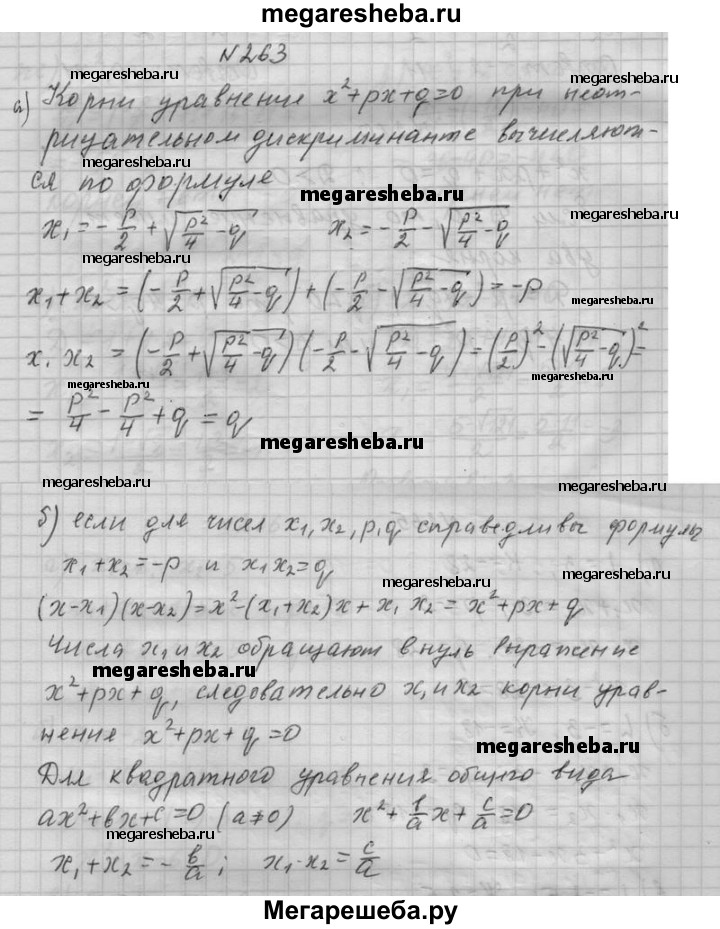 megaresheba.ru
N263
megaresheba.ru
megaresheba.ru
а) Корни уравнение x²+px+q=0 при неот-
рицательном дискриминанте вычисляют-
megaresheba.ru
megaresheba.ru
ся по формуле
megaresheba.ru
megaresheba.ru
x₁ = -p/2 + √(p²/4 - q)   x₂ = -p/2 - √(p²/4 - q)
x₁+x₂ = (-p/2 + √(p²/4 - q)) + (-p/2 - √(p²/4 - q)) = -p
megaresheba.ru
x₁ x₂ = (-p/2 + √(p²/4 - q)) (-p/2 - √(p²/4 - q)) = (p/2)² - (√(p²/4 - q))² =
megaresheba.ru
megaresheba.ru
= p²/4 - p²/4 + q = q
megaresheba.ru
megaresheba.ru
megaresheba.ru
б) если для чисел x₁, x₂, p, q справедливы формулы
x₁+x₂=-p и x₁x₂=q
megaresheba.ru
megaresheba.ru
(x-x₁)(x-x₂)=x²-(x₁+x₂)x+x₁x₂=x²+px+q
Числа x₁ и x₂ обращают в нуль выражение
megaresheba.ru
megaresheba.ru
x²+px+q, следовательно x₁ и x₂ корни урав-
нения x²+px+q=0
megaresheba.ru
Для квадратного уравнения общего вида
ax²+bx+c=0 (a≠0)   x²+b/a x+c/a=0
megaresheba.ru
megaresheba.ru
x₁+x₂=-b/a;   x₁·x₂=c/a
Мегарешеба.ру